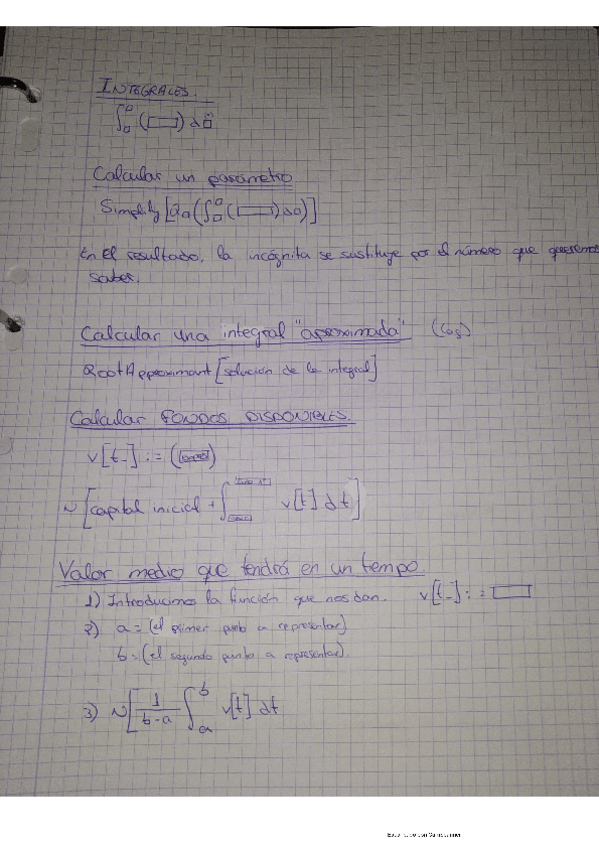 INTEGRALES.
∫□□ (▭) d□
Calcular un parámetro
Simplify[∂a(∫□□(▭)d□)]
En el resultado, la incógnita se sustituye por el número que queremos
saber.
Calcular una integral "aproximada" (Cos)
RootApproximant[solución de la integral]
Calcular FONDOS DISPONIBLES.
v[t_] := (▭)
N[capital inicial + ∫ v[t] dt]
Valor medio que tendrá en un tiempo.
1) Introducimos la función que nos dan. v[t_] := ▭
2) a = (el primer punto a representar)
b = (el segundo punto a representar).
3) N[1/(b-a) ∫ₐᵇ v[t] dt